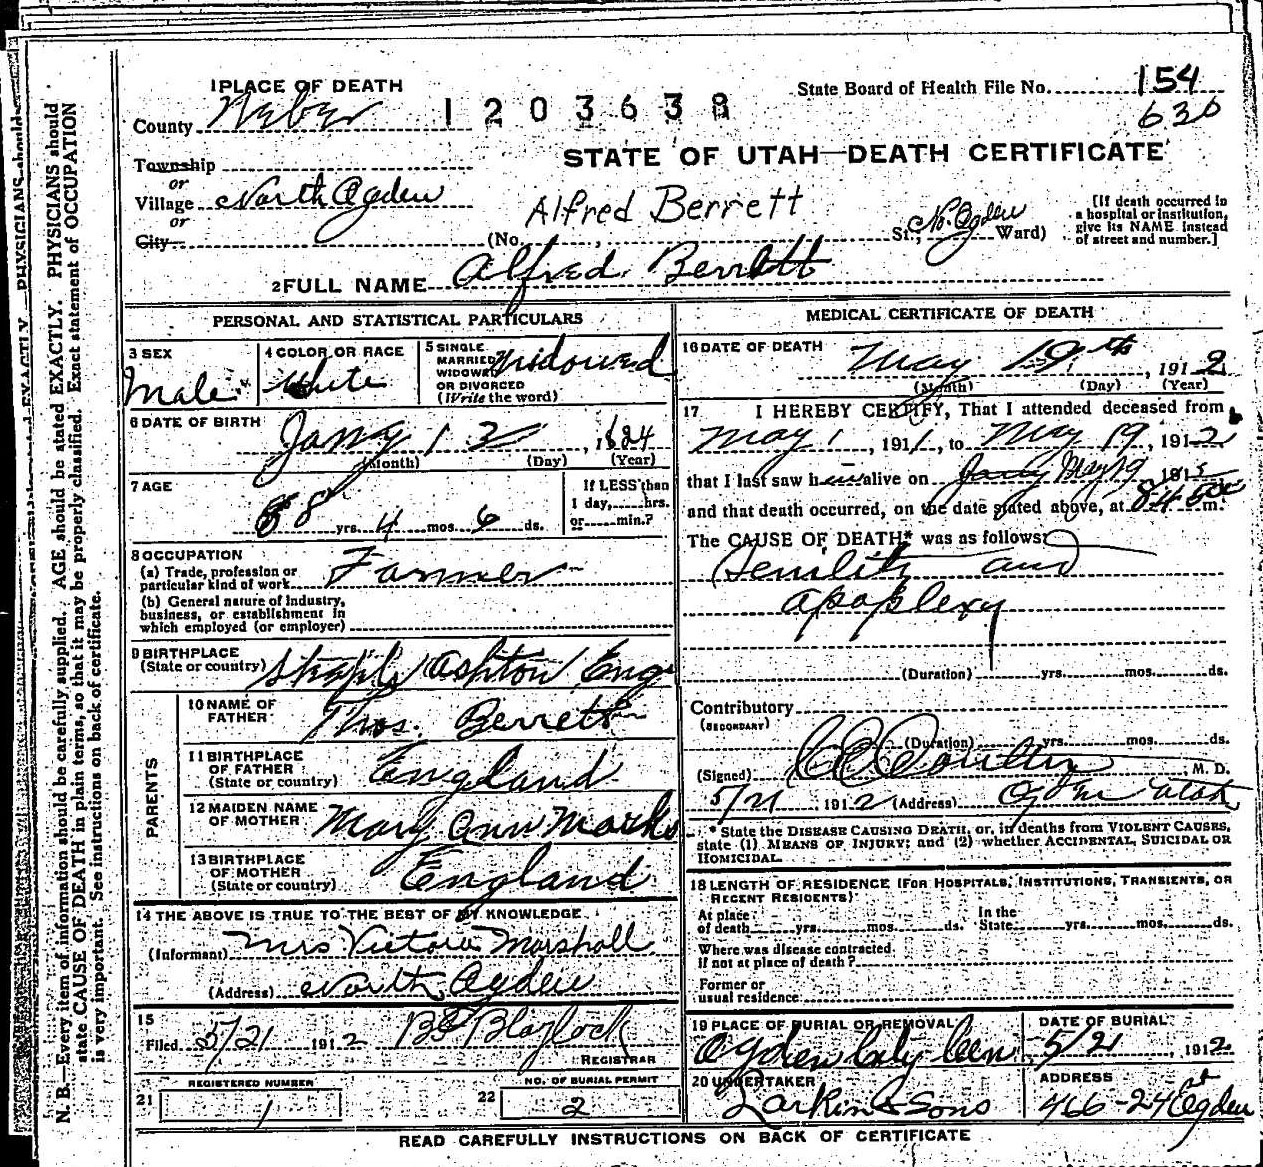 1 PLACE OF DEATH
State Board of Health File No. 154
630
County Weber
1 2 0 3 6 3 8
STATE OF UTAH—DEATH CERTIFICATE
Township
or
Village North Ogden
or
City
Alfred Berrett
(No. St.; No. Ogden Ward)
[If death occurred in a hospital or institution, give its NAME instead of street and number.]
2 FULL NAME Alfred Berrett
PERSONAL AND STATISTICAL PARTICULARS
3 SEX Male
4 COLOR OR RACE White
5 SINGLE MARRIED WIDOWED OR DIVORCED (Write the word) Widowed
6 DATE OF BIRTH Jany 13, 1824
(Month) (Day) (Year)
7 AGE 88 yrs. 4 mos. 6 ds.
If LESS than 1 day, hrs. or min.?
8 OCCUPATION
(a) Trade, profession or particular kind of work Farmer
(b) General nature of industry, business, or establishment in which employed (or employer)
9 BIRTHPLACE
(State or country) Ashton Eng.
PARENTS
10 NAME OF FATHER Thos. Berrett
11 BIRTHPLACE OF FATHER (State or country) England
12 MAIDEN NAME OF MOTHER Mary Ann Marks
13 BIRTHPLACE OF MOTHER (State or country) England
14 THE ABOVE IS TRUE TO THE BEST OF MY KNOWLEDGE
(Informant) Mrs Victoria Marshall
(Address) North Ogden
15
Filed 5/21 1912 Blaylock
REGISTRAR
21 REGISTERED NUMBER 1
22 NO. OF BURIAL PERMIT 2
MEDICAL CERTIFICATE OF DEATH
16 DATE OF DEATH May 19th, 1912
(Month) (Day) (Year)
17 I HEREBY CERTIFY, That I attended deceased from
May 1, 1911, to May 19, 1912
that I last saw h alive on May 19 191
and that death occurred, on the date stated above, at m.
The CAUSE OF DEATH* was as follows:
Senility and
apoplexy
(Duration) yrs. mos. ds.
Contributory
(SECONDARY)
(Duration) yrs. mos. ds.
(Signed) Coulter M. D.
5/21 1912 (Address) Ogden Utah
* State the DISEASE CAUSING DEATH, or, in deaths from VIOLENT CAUSES, state (1) MEANS OF INJURY; and (2) whether ACCIDENTAL, SUICIDAL OR HOMICIDAL.
18 LENGTH OF RESIDENCE (FOR HOSPITALS, INSTITUTIONS, TRANSIENTS, OR RECENT RESIDENTS)
At place of death yrs. mos. ds. In the State yrs. mos. ds.
Where was disease contracted If not at place of death?
Former or usual residence
19 PLACE OF BURIAL OR REMOVAL Ogden City Cem
DATE OF BURIAL 5/21, 1912
20 UNDERTAKER Larkin & Sons
ADDRESS 466-24 st Ogden
READ CAREFULLY INSTRUCTIONS ON BACK OF CERTIFICATE
N. B.—Every item of information should be carefully supplied. AGE should be stated EXACTLY. PHYSICIANS should
state CAUSE OF DEATH in plain terms, so that it may be properly classified. Exact statement of OCCUPATION
is very important. See instructions on back of certificate.
EXACTLY. PHYSICIANS should